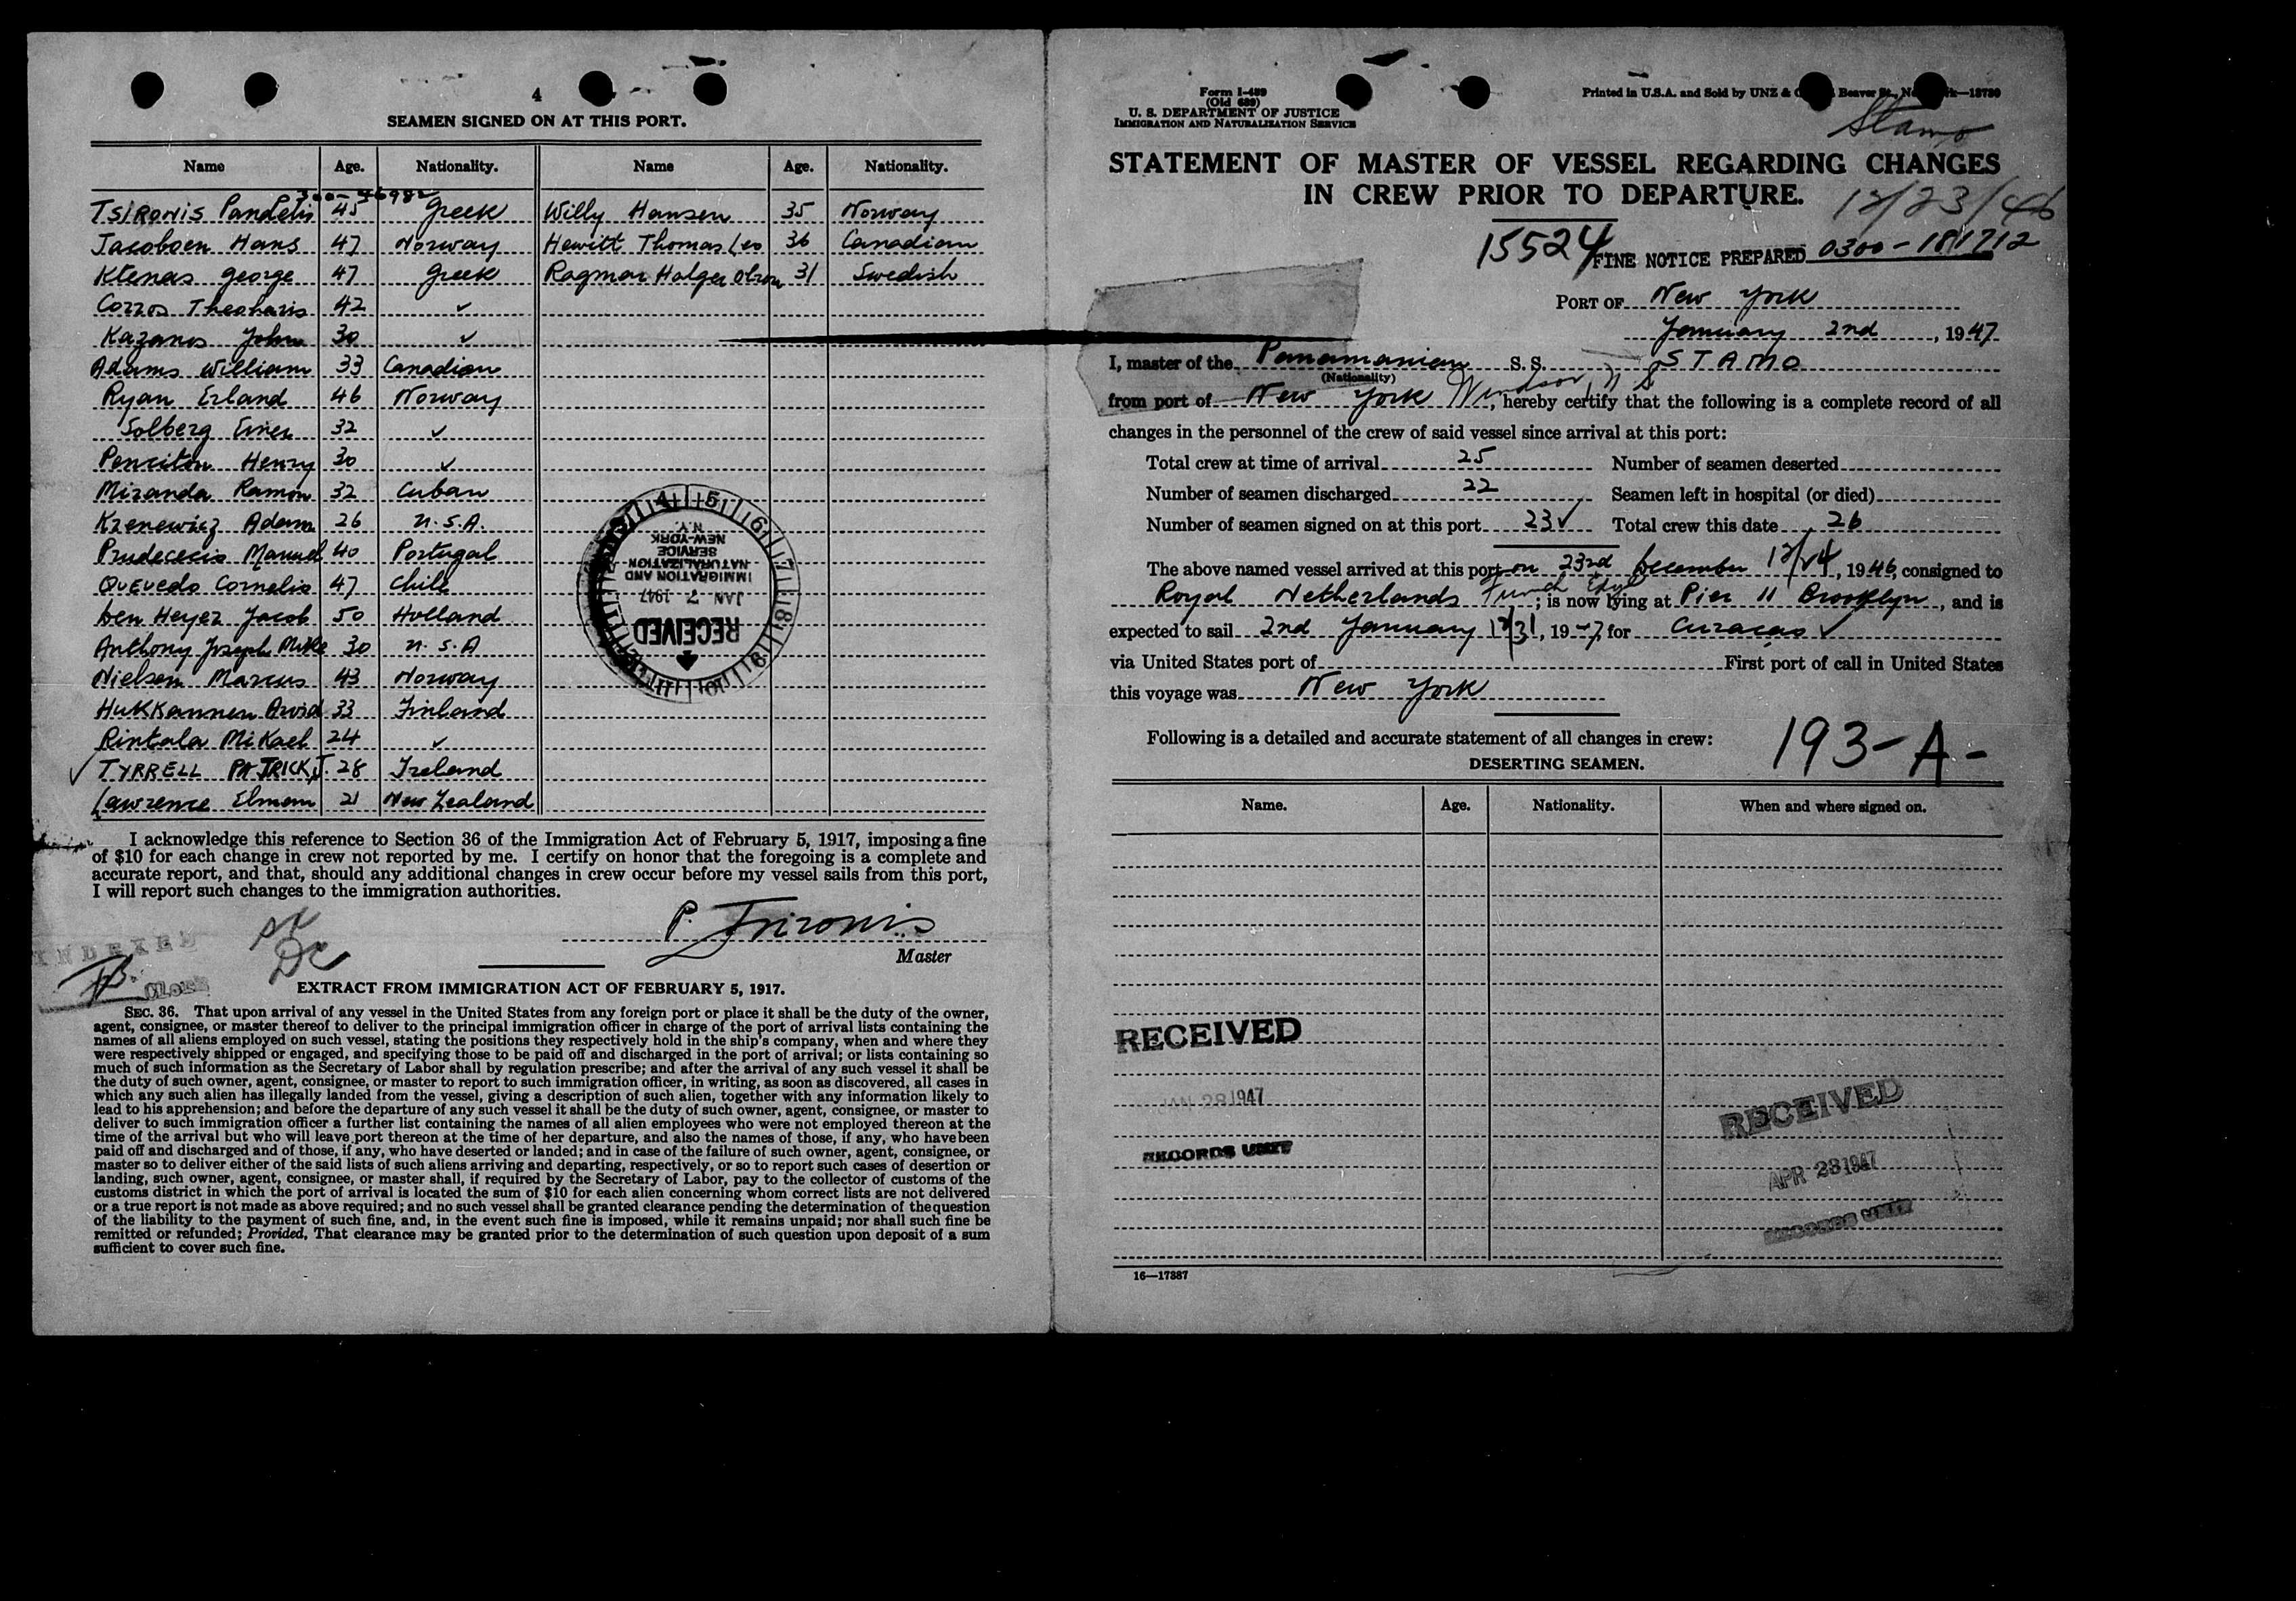 4
SEAMEN SIGNED ON AT THIS PORT.
Name Age. Nationality. Name Age. Nationality.
300-46982
TSIRONIS Pandelis 45 Greek Willy Hansen 35 Norway
Jacobsen Hans 47 Norway Hewitt Thomas Leo 36 Canadian
Ktenas George 47 Greek Ragmar Holger Olson 31 Swedish
Cozzos Theoharis 42 ✓
Kazanos John 30 ✓
Adams William 33 Canadian
Ryan Erland 46 Norway
Solberg Einer 32 ✓
Henry 30 ✓
Miranda Ramon 32 Cuban
Krenewicz Adam 26 U.S.A.
Prudececio Manuel 40 Portugal
Quevedo Cornelio 47 Chile
Den Heyer Jacob 50 Holland
Anthony Joseph Mike 30 U.S.A
Nielsen Marcus 43 Norway
Hukkannen Arvid 33 Finland
Rintala Mikael 24 ✓
✓ TYRRELL PATRICK, J. 28 Ireland
Lawrence Elmem 21 New Zealand
IMMIGRATION AND
NATURALIZATION
SERVICE
NEW-YORK
N.Y.
JAN 7 1947
RECEIVED
I acknowledge this reference to Section 36 of the Immigration Act of February 5, 1917, imposing a fine
of $10 for each change in crew not reported by me. I certify on honor that the foregoing is a complete and
accurate report, and that, should any additional changes in crew occur before my vessel sails from this port,
I will report such changes to the immigration authorities.
P. Tsironis
Master
INDEXED
EXTRACT FROM IMMIGRATION ACT OF FEBRUARY 5, 1917.
SEC. 36. That upon arrival of any vessel in the United States from any foreign port or place it shall be the duty of the owner,
agent, consignee, or master thereof to deliver to the principal immigration officer in charge of the port of arrival lists containing the
names of all aliens employed on such vessel, stating the positions they respectively hold in the ship's company, when and where they
were respectively shipped or engaged, and specifying those to be paid off and discharged in the port of arrival; or lists containing so
much of such information as the Secretary of Labor shall by regulation prescribe; and after the arrival of any such vessel it shall be
the duty of such owner, agent, consignee, or master to report to such immigration officer, in writing, as soon as discovered, all cases in
which any such alien has illegally landed from the vessel, giving a description of such alien, together with any information likely to
lead to his apprehension; and before the departure of any such vessel it shall be the duty of such owner, agent, consignee, or master to
deliver to such immigration officer a further list containing the names of all alien employees who were not employed thereon at the
time of the arrival but who will leave port thereon at the time of her departure, and also the names of those, if any, who have been
paid off and discharged and of those, if any, who have deserted or landed; and in case of the failure of such owner, agent, consignee, or
master so to deliver either of the said lists of such aliens arriving and departing, respectively, or so to report such cases of desertion or
landing, such owner, agent, consignee, or master shall, if required by the Secretary of Labor, pay to the collector of customs of the
customs district in which the port of arrival is located the sum of $10 for each alien concerning whom correct lists are not delivered
or a true report is not made as above required; and no such vessel shall be granted clearance pending the determination of the question
of the liability to the payment of such fine, and, in the event such fine is imposed, while it remains unpaid; nor shall such fine be
remitted or refunded; Provided, That clearance may be granted prior to the determination of such question upon deposit of a sum
sufficient to cover such fine.
Form I-489
(Old 689)
U. S. DEPARTMENT OF JUSTICE
IMMIGRATION AND NATURALIZATION SERVICE
Printed in U.S.A. and Sold by UNZ & Beaver St., 18730
Stamo
STATEMENT OF MASTER OF VESSEL REGARDING CHANGES
IN CREW PRIOR TO DEPARTURE.
12/23/46
15524
FINE NOTICE PREPARED 0300-181712
PORT OF New York
January 2nd, 1947
I, master of the Panamanian S. S. STAMO
(Nationality)
from port of New York Windsor, N S, hereby certify that the following is a complete record of all
changes in the personnel of the crew of said vessel since arrival at this port:
Total crew at time of arrival 25 Number of seamen deserted
Number of seamen discharged 22 Seamen left in hospital (or died)
Number of seamen signed on at this port 23✓ Total crew this date 26
The above named vessel arrived at this port on 23rd December 12/24, 1946, consigned to
Royal Netherlands Funch Edye; is now lying at Pier 11 Brooklyn, and is
expected to sail 2nd January 12/31, 19-7, for Curacao ✓
via United States port of First port of call in United States
this voyage was New York
Following is a detailed and accurate statement of all changes in crew:
193-A-
DESERTING SEAMEN.
Name. Age. Nationality. When and where signed on.
RECEIVED
JAN 28 1947
RECORDS UNIT
RECEIVED
APR 23 1947
RECORDS UNIT
16—17887